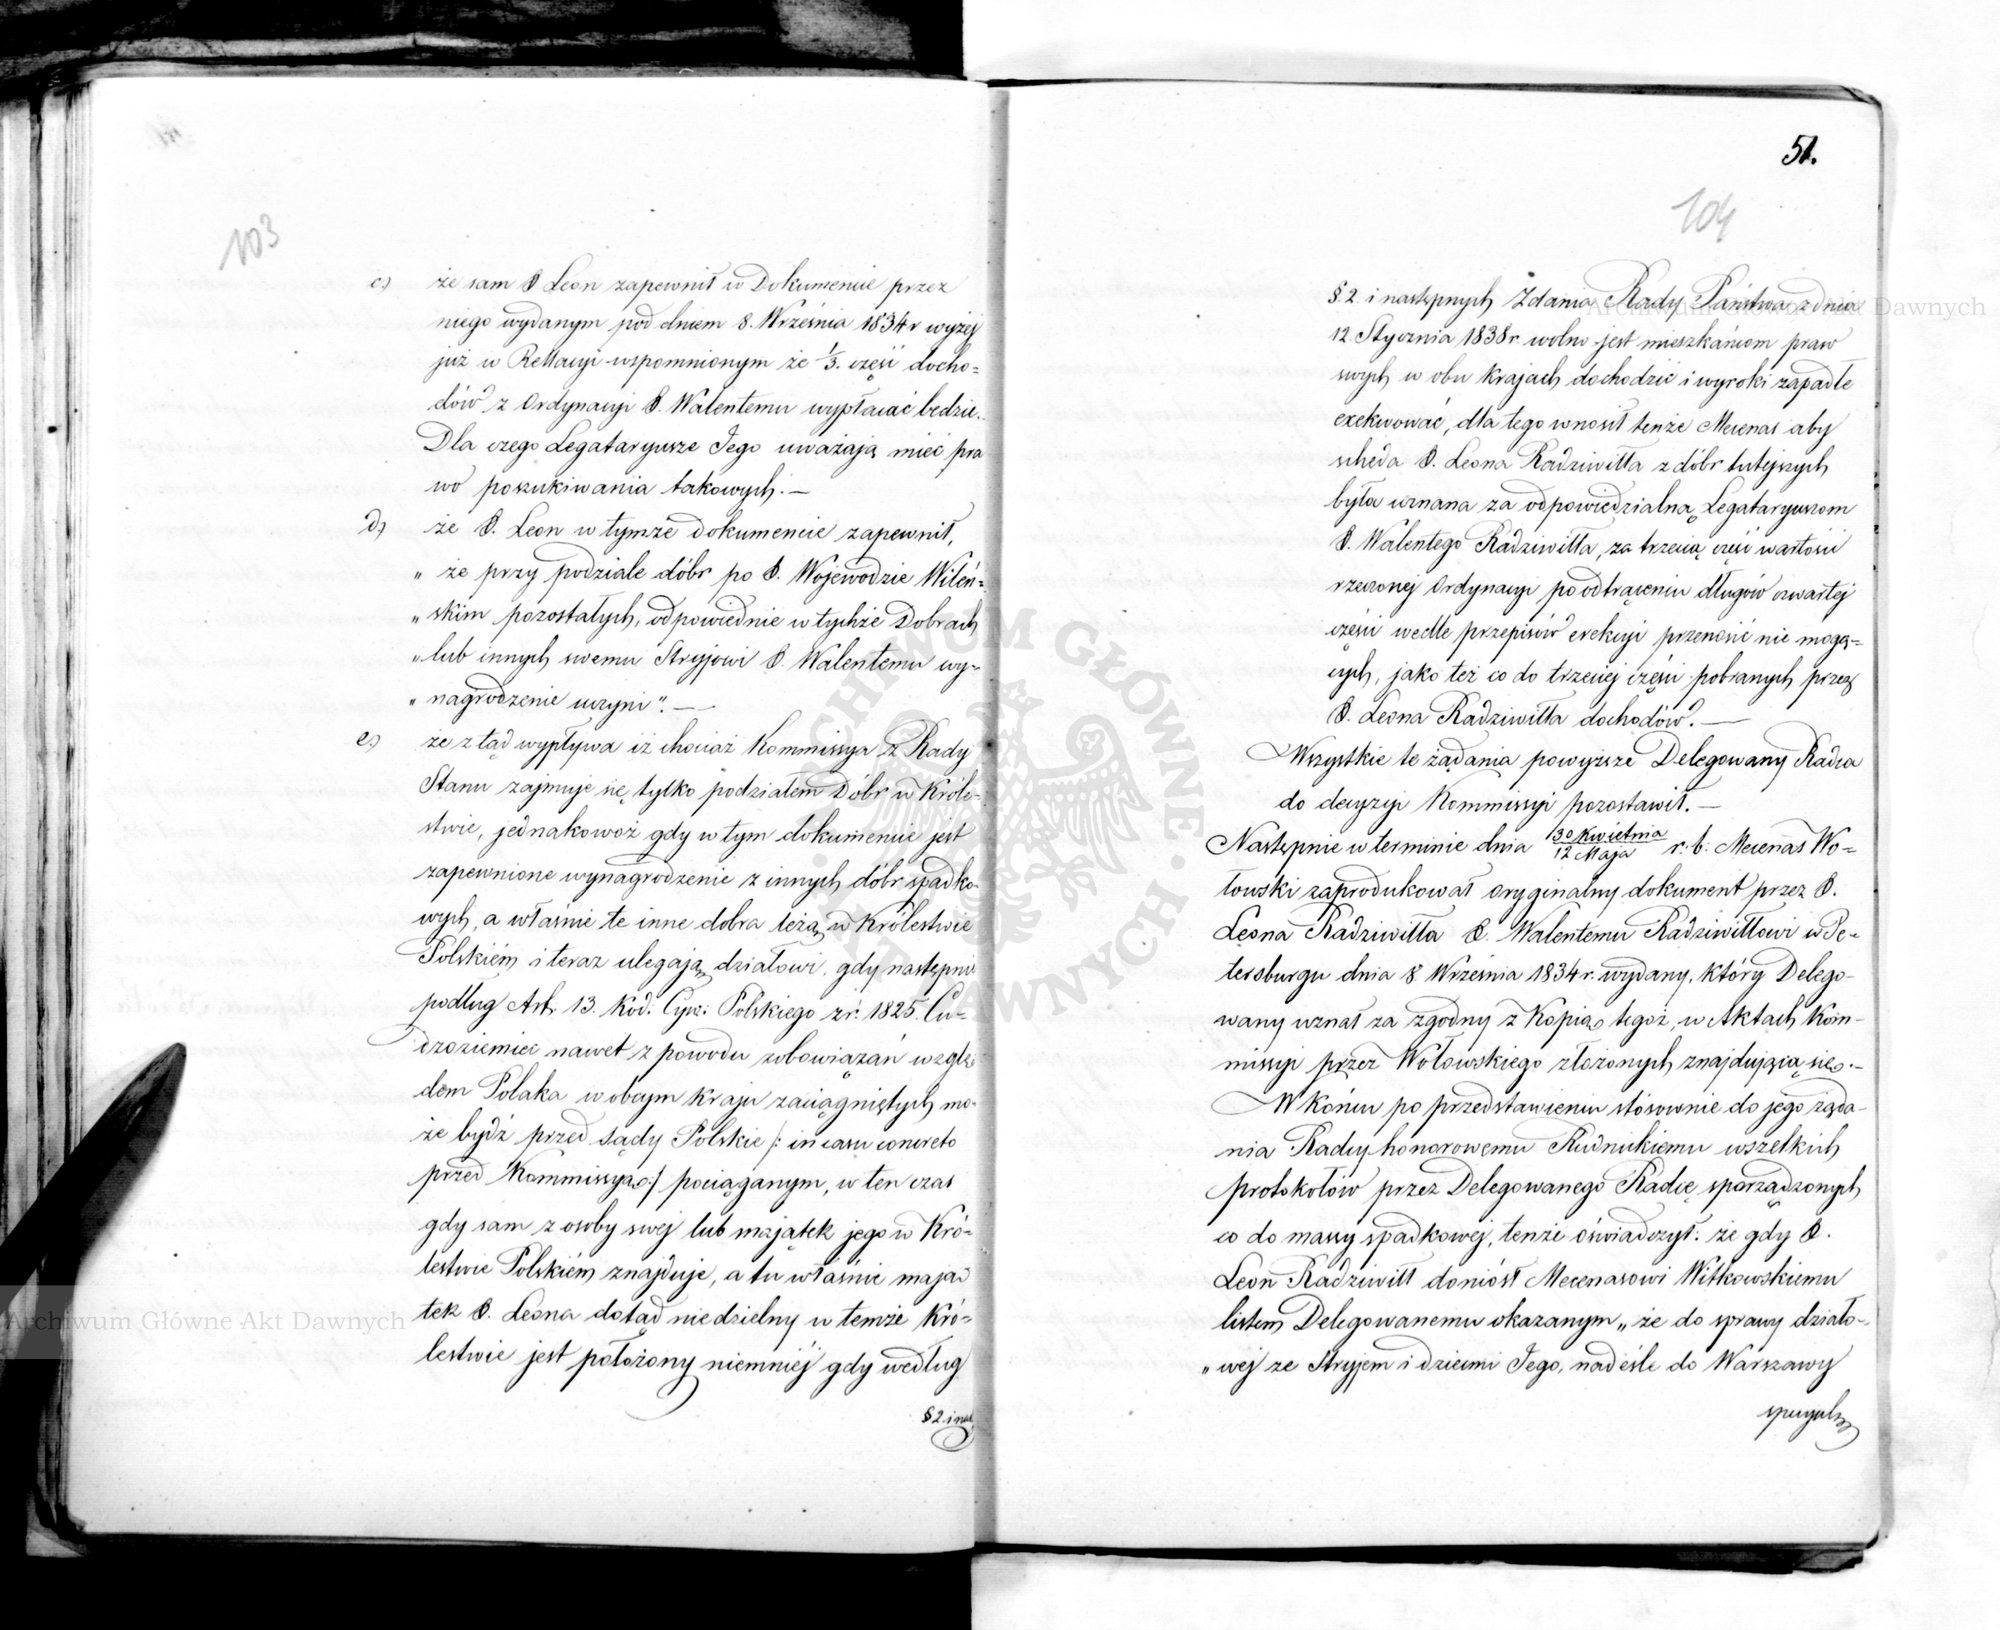 103
c) że sam X Leon zapewnił w Dokumencie przez
niego wydanym pod dniem 8. Września 1834 r wyżej
już w Rellacyi wspomnionym że 1/3. część docho=
dów z Ordynacyi X. Walentemu wypłacać będzie.
Dla czego Legataryusze Jego uważają mieć pra
wo poszukiwania takowych. —
d) że X. Leon w tymże dokumencie zapewnił,
„ że przy podziale dóbr po X. Wojewodzie Wileń=
„ skim pozostałych, odpowiednie w tychże Dobrach
„ lub innych swemu Stryjowi X. Walentemu wy=
„ nagrodzenie uczyni". —
e) że z tąd wypływa iż chociaż Kommissya z Rady
Stanu zajmuje się tylko podziałem Dóbr w Króle=
stwie, jednakowoż gdy w tym dokumencie jest
zapewnione wynagrodzenie z innych dóbr spadko=
wych, a właśnie te inne dobra leżą w Królestwie
Polskiém i teraz ulegają działowi, gdy następnie
podług Art. 13. Kod: Cyw: Polskiego z r. 1825. Cu=
dzoziemiec nawet z powodu zobowiązań wzglę
dem Polaka w obcym kraju zaciągniętych mo=
że bydź przed sądy Polskie /: in casu concreto
przed Kommissyą :/ pociąganym, w ten czas
gdy sam z osoby swej lub majątek jego w Kró=
lestwie Polskiém znajduje, a tu właśnie mają=
tek X. Leona dotąd niedzielny w temże Kró=
lestwie jest położony niemniéj gdy według
§ 2. i nast.
51.
104
§. 2. i następnych Zdania Rady Państwa z dnia
12. Stycznia 1838 r. wolno jest mieszkańcom praw
swych w obu krajach dochodzić i wyroki zapadłe
exekwować, dla tego wnosił tenże Mecenas aby
scheda X. Leona Radziwiłła z dóbr tutejszych
była uznana za odpowiedzialną Legataryuszom
X. Walentego Radziwiłła, za trzecią część wartości
rzeczonej Ordynacyi po odtrąceniu długów czwartej
części wedle przepisów erekcyi przenosić nie mogą=
cych, jako też co do trzeciej części pobranych przez
X. Leona Radziwiłła dochodów. —
Wszystkie te żądania powyższe Delegowany Radca
do decyzyi Kommissyi pozostawił. —
Następnie w terminie dnia 30 Kwietnia/12 Maja r. b. Mecenas Wo=
łowski zaprodukował oryginalny dokument przez X.
Leona Radziwiłła X. Walentemu Radziwiłłowi w Pe=
tersburgu dnia 8 Września 1834 r. wydany, który Delego=
wany uznał za zgodny z Kopią tegoż, w Aktach Kom=
missyi przez Wołowskiego złożonych znajdującą się. —
W końcu po przedstawieniu stósownie do jego żąda=
nia Radcy honorowemu Rudnickiemu wszelkich
protokołów przez Delegowanego Radcę sporządzonych
co do massy spadkowéj, tenże oświadczył: że gdy X.
Leon Radziwiłł doniósł Mecenasowi Witkowskiemu
listem Delegowanemu okazanym „ że do sprawy działo=
„ wej ze Stryjem i dziećmi Jego, nadeśle do Warszawy
specyaln
Archiwum Główne Akt Dawnych
Archiwum Główne Akt Dawnych
ARCHIWUM GŁÓWNE AKT DAWNYCH